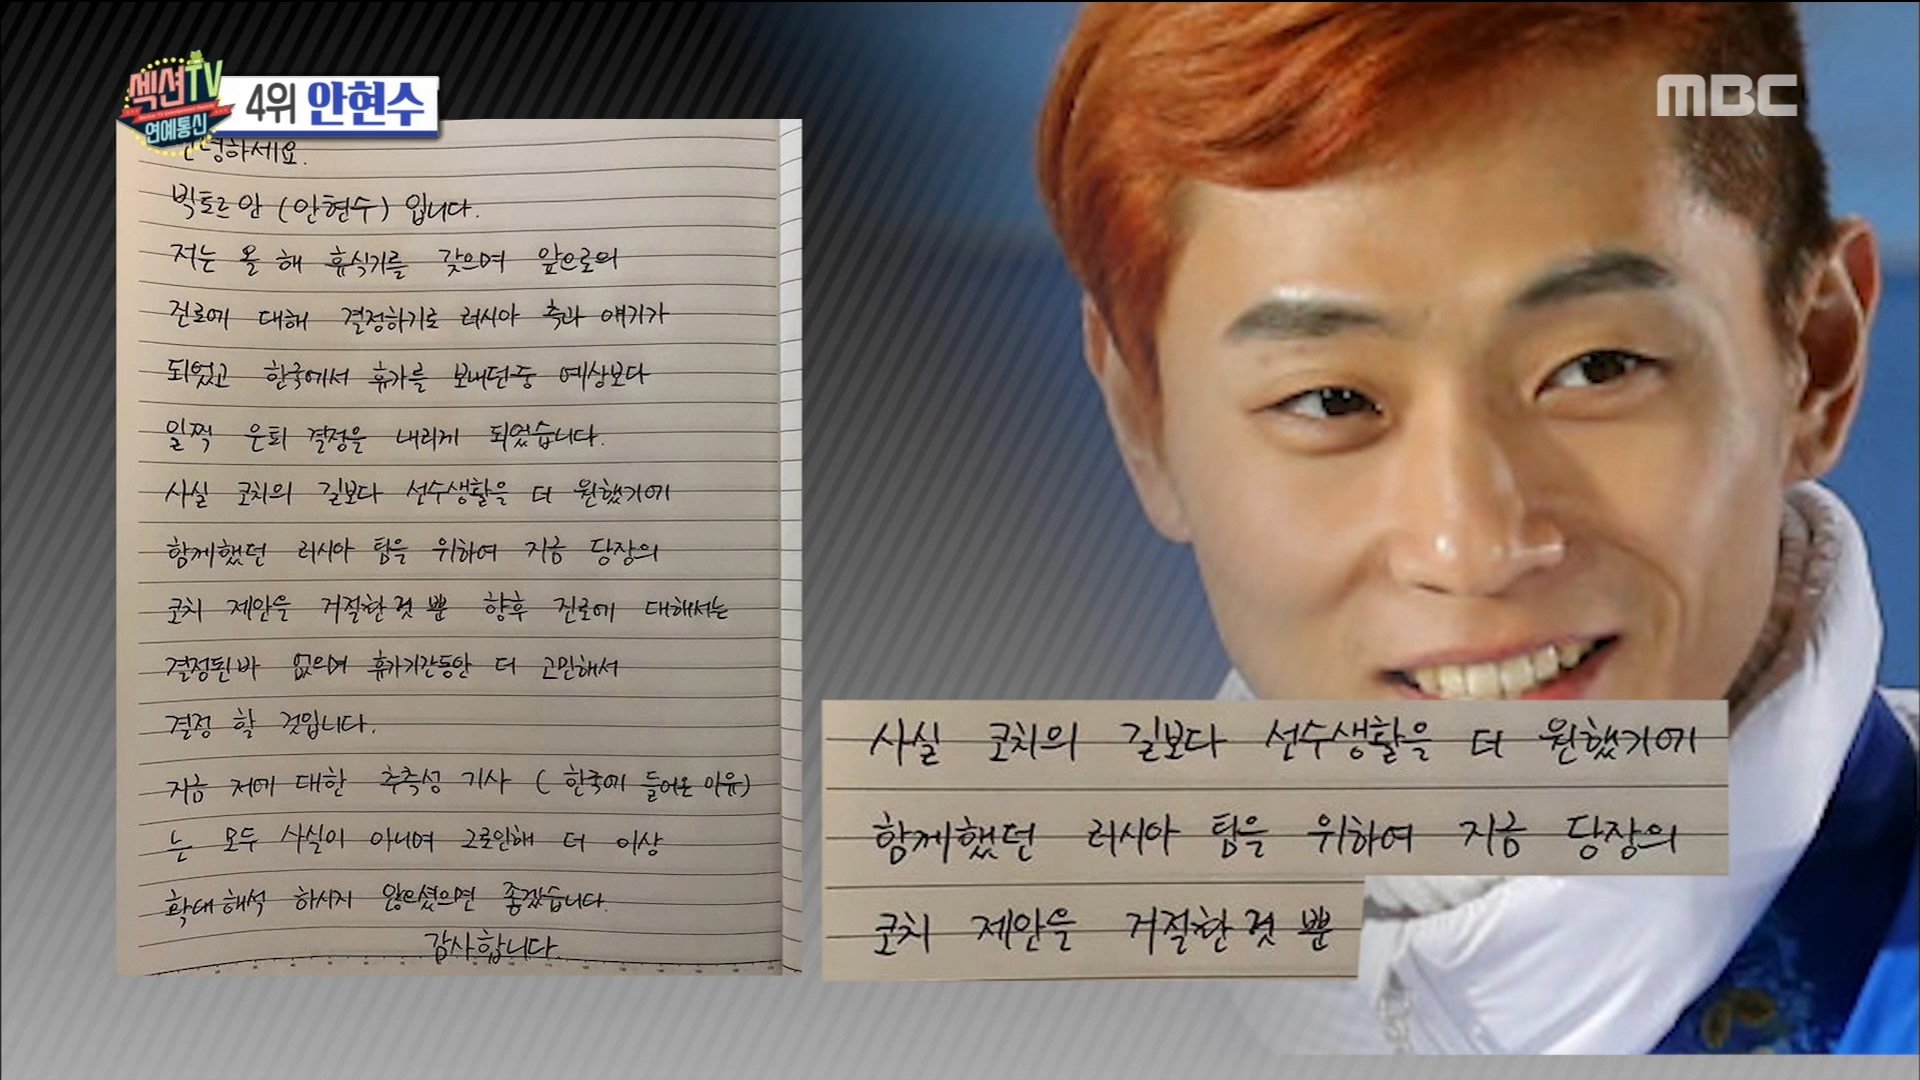 섹션TV
연예통신
4위 안현수
MBC
안녕하세요.
빅토르안 (안현수) 입니다.
저는 올 해 휴식기를 갖으며 앞으로의
진로에 대해 결정하기로 러시아 측과 얘기가
되었고 한국에서 휴가를 보내던중 예상보다
일찍 은퇴 결정을 내리게 되었습니다.
사실 코치의 길보다 선수생활을 더 원했기에
함께했던 러시아 팀을 위하여 지금 당장의
코치 제안을 거절한 것 뿐 향후 진로에 대해서는
결정된바 없으며 휴가기간동안 더 고민해서
결정 할 것입니다.
지금 저에 대한 추측성 기사 ( 한국에 들어온 이유)
는 모두 사실이 아니며 그로인해 더 이상
확대해석 하시지 않으셨으면 좋겠습니다.
감사합니다.
사실 코치의 길보다 선수생활을 더 원했기에
함께했던 러시아 팀을 위하여 지금 당장의
코치 제안을 거절한 것 뿐